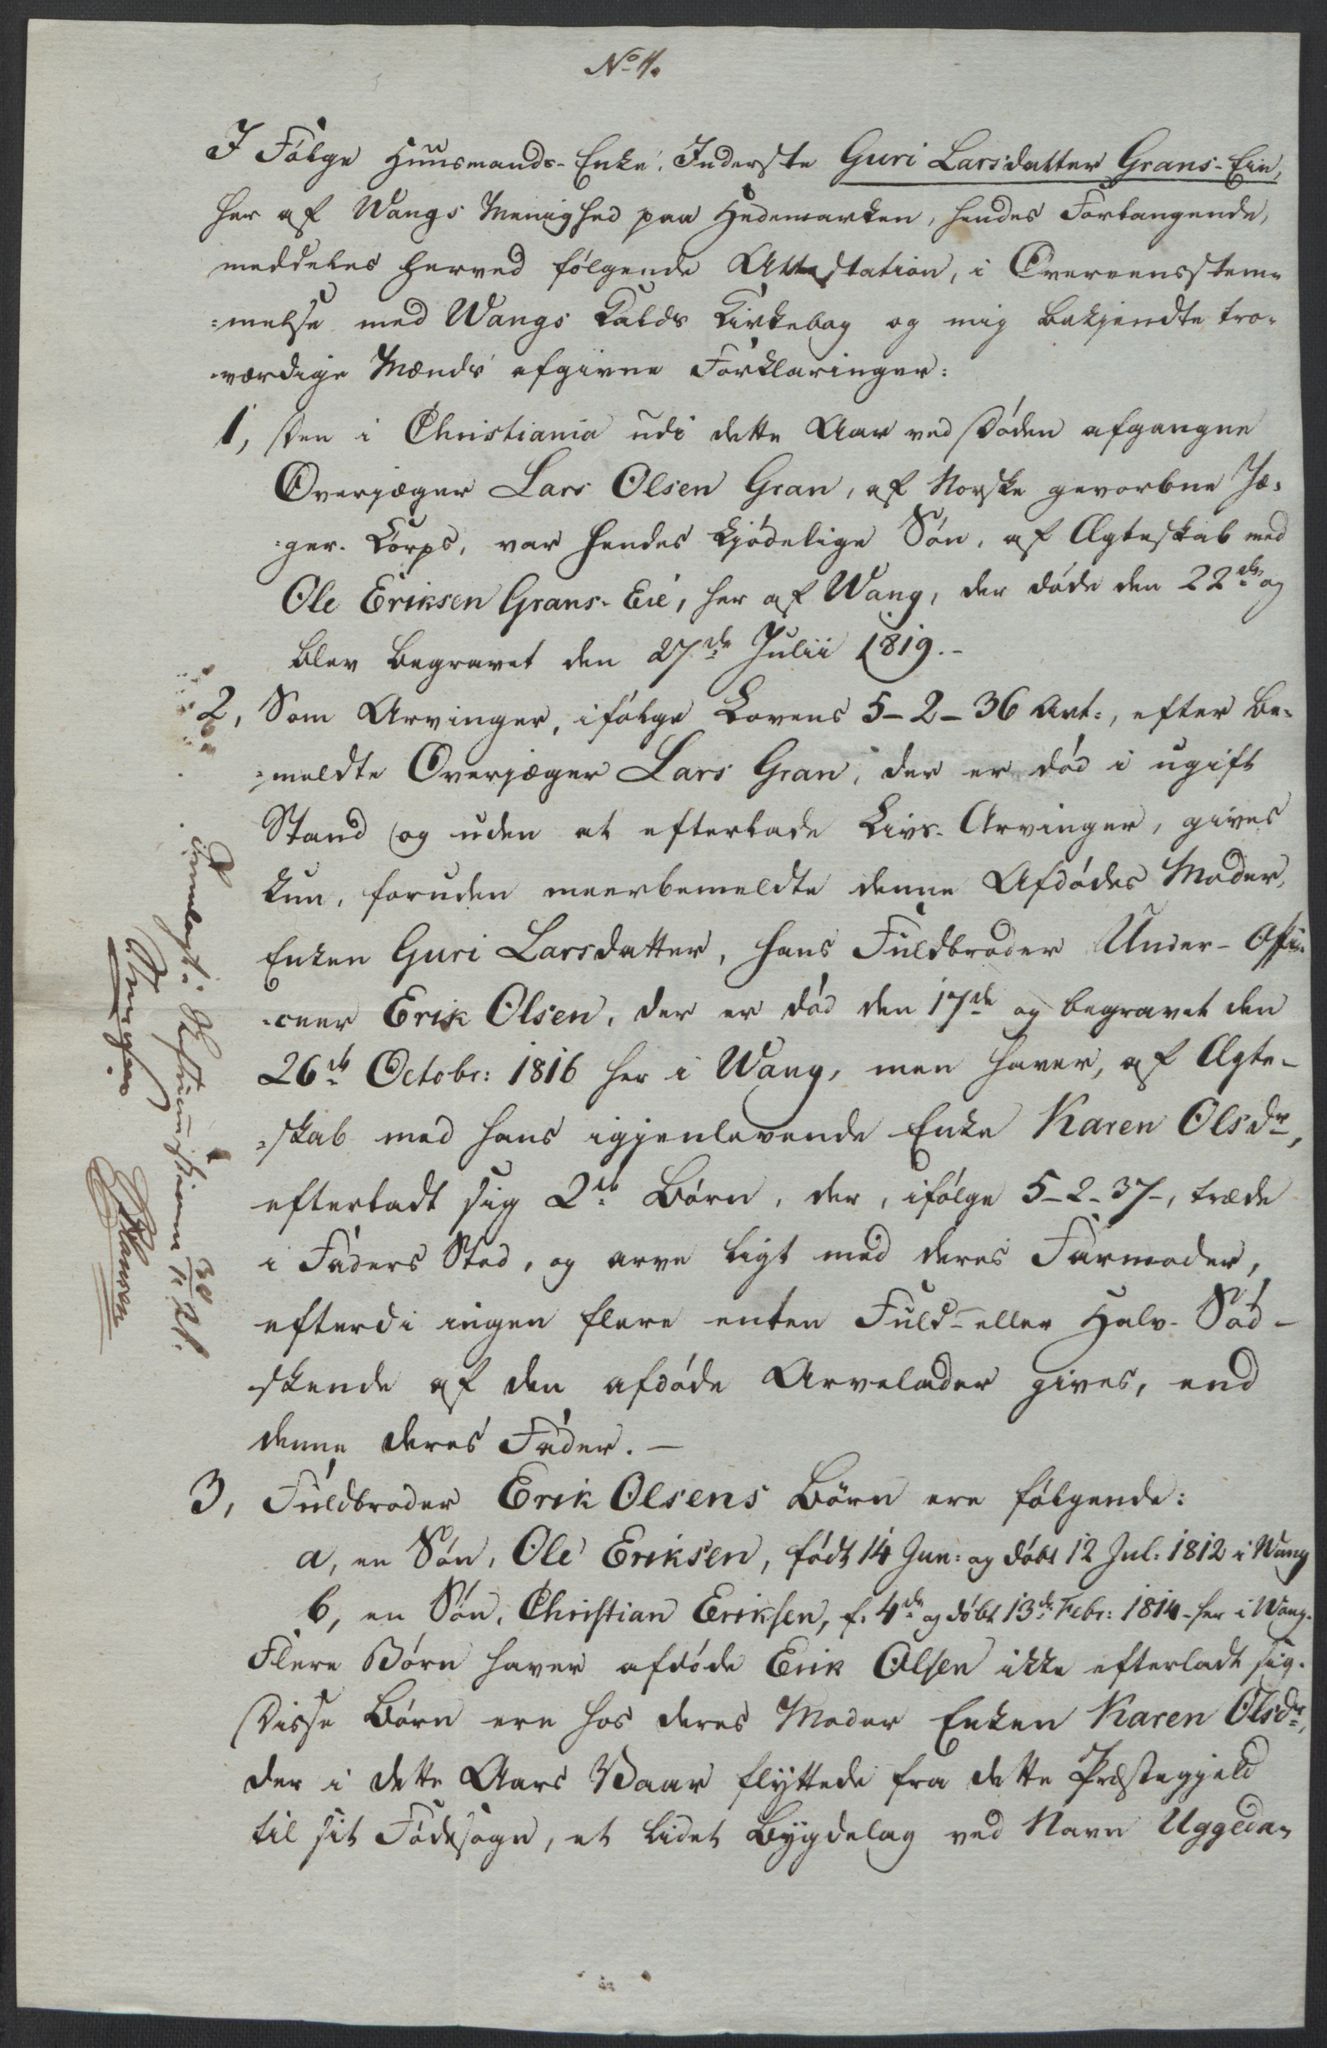 No 11.
I Følge Huusmands-Enke, Inderste Guri Larsdatter Grans-Eie,
her af Wangs Menighed paa Hedemarken, hendes Forlangende,
meddeles herved følgende Attestation, i Overeensstem-
:melse med Wangs Kalds Kirkebog og mig bekjendte tro-
værdige Mænds afgivne Forklaringer:
1, Den i Christiania udi dette Aar ved Døden afgangne
Overjæger Lars Olsen Gran, af Norske gevorbne Jæ-
:ger-Corps, var hendes kjødelige Søn, af Ægteskab med
Ole Eriksen Grans-Eie, her af Wang, der døde den 22de og
blev begravet den 27de Julii 1819.-
2, Som Arvinger, ifølge Lovens 5-2-36 Art:, efter be-
:meldte Overjæger Lars Gran, der er død i ugift
Stand og uden at efterlade Livs-Arvinger, gives
kun, foruden meerbemeldte denne Afdødes Moder,
Enken Guri Larsdatter, hans Fuldbroder Under-Offi-
:ceer Erik Olsen, der er død den 17de og begravet den
26de Octobr: 1816 her i Wang, men haver, af Ægte-
:skab med hans igjenlevende Enke Karen Olsdr,
efterladt sig 2de Børn, der, ifølge 5-2-37-, træde
i Faders Sted, og arve ligt med deres Farmoder,
efterdi ingen flere enten Fuld- eller Halv-Sød-
skende af den afdøde Arvelader gives, end
denne deres Fader.-
3, Fuldbroder Erik Olsens Børn ere følgende:
a, en Søn, Ole Eriksen, født 14 Jun: og døbt 12 Jul: 1812 i Wang
b, en Søn, Christian Eriksen, f. 4de og døbt 13de Febr: 1814 - her i Wang.
Flere Børn haver afdøde Erik Olsen ikke efterladt sig.
Disse Børn ere hos deres Moder Enken Karen Olsdr,
der i dette Aars Vaar flyttede fra dette Præstegjeld
til sit Fødesogn, et lidet Bygdelag ved Navn Uggeda-
Fremlagt i Skifte 30/11 21.